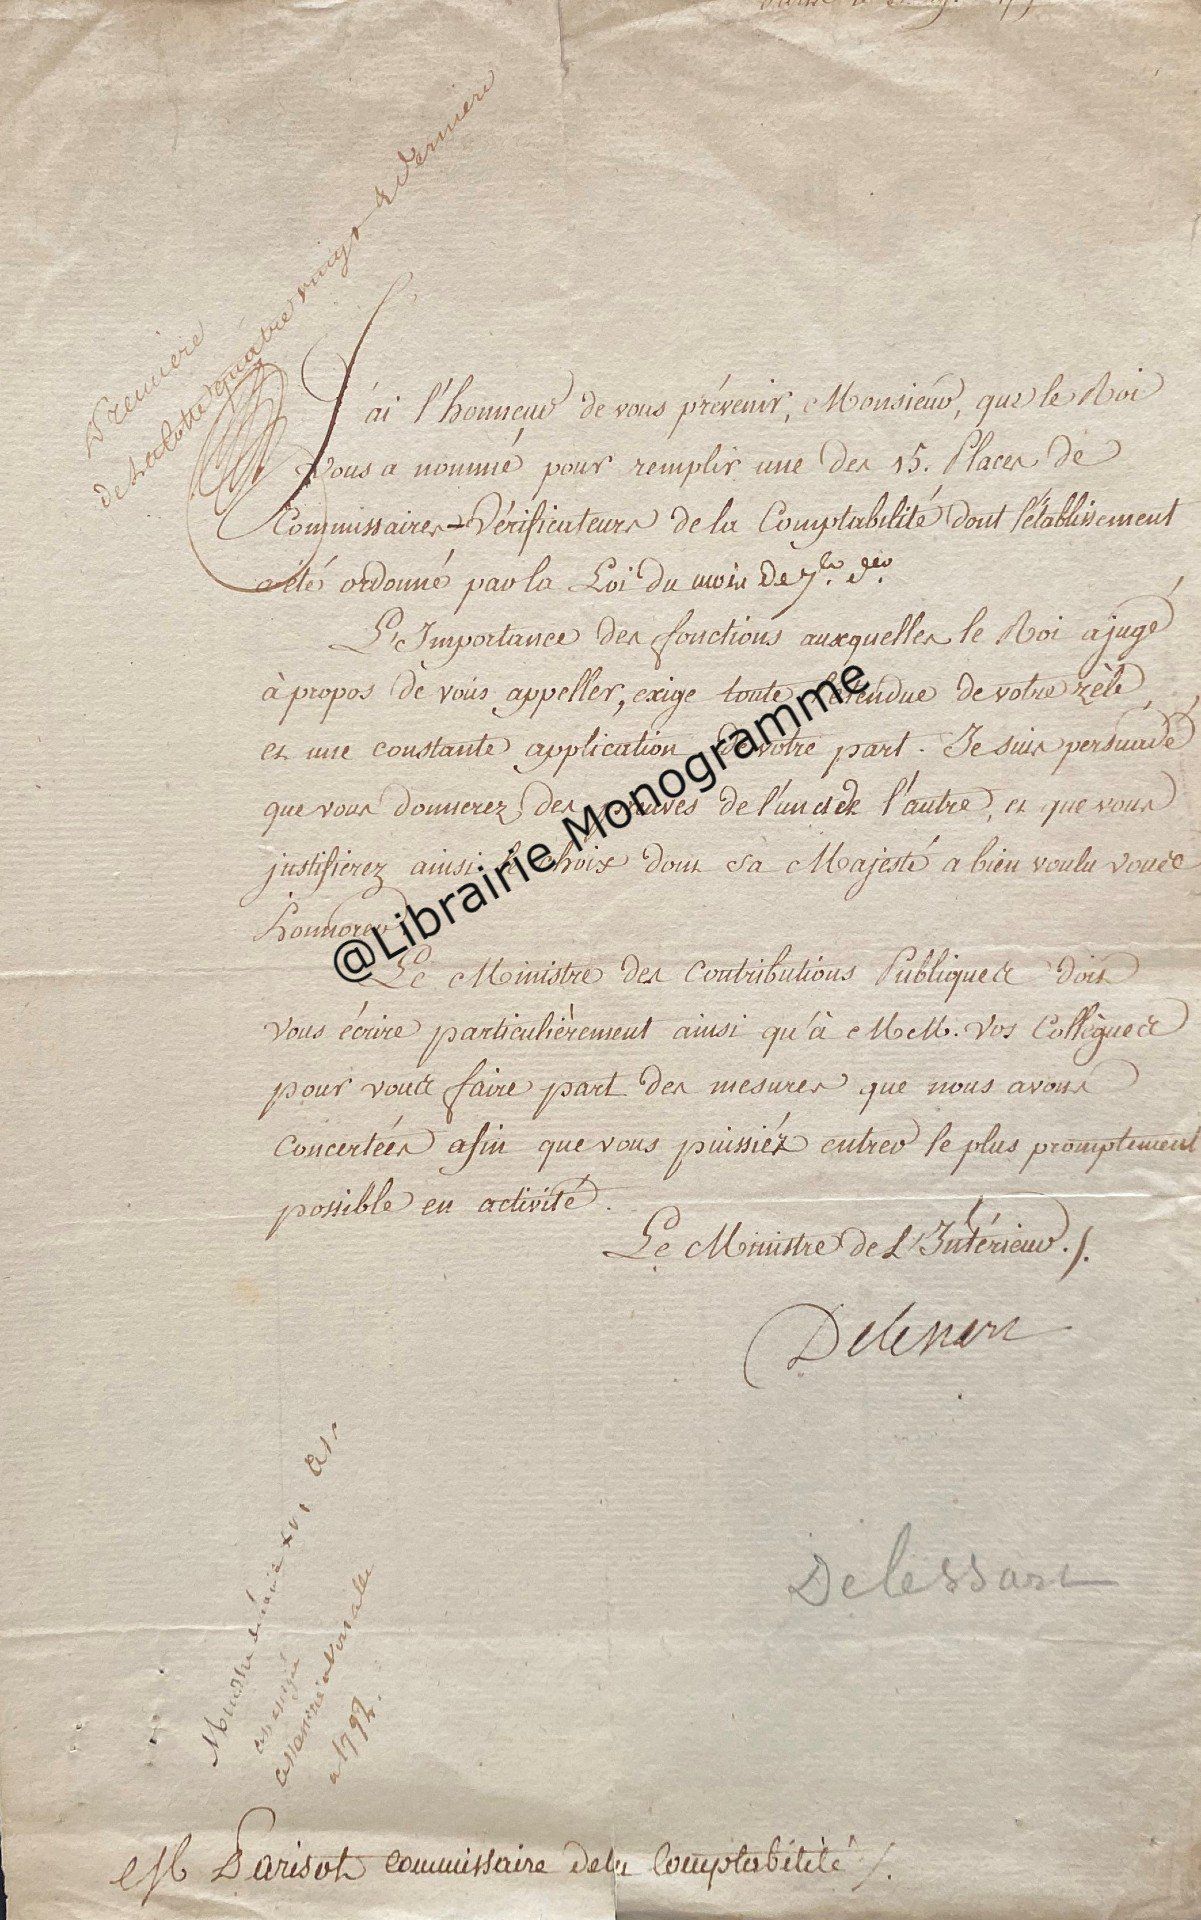 Première
de la cotte quatre vingt & dernière
J'ai l'honneur de vous prévenir, Monsieur, que le Roi
vous a nommé pour remplir une des 15. Places de
Commissaires-Vérificateurs de la Comptabilité dont l'établissement
a été ordonné par la Loi du mois de 7.bre der.
L'Importance des fonctions auxquelles le Roi a jugé
à propos de vous appeller, exige toute l'étendue de votre zèle
et une constante application de votre part. Je suis persuadé
que vous donnerez des preuves de l'un et de l'autre, et que vous
justifierez ainsi le choix dont Sa Majesté a bien voulu vous
honnorer.
Le Ministre des Contributions Publiques doit
vous écrire particulièrement ainsi qu'à MM. vos Collègues
pour vous faire part des mesures que nous avons
Concertées afin que vous puissiéz entrer le plus promptement
possible en activité.
Le Ministre de L'Intérieur ./.
Delessart
Delessart
Ministre de Louis XVI
assassiné à Versailles
a 1792.
M Parisot commissaire de la Comptabilité /.
@Librairie Monogramme